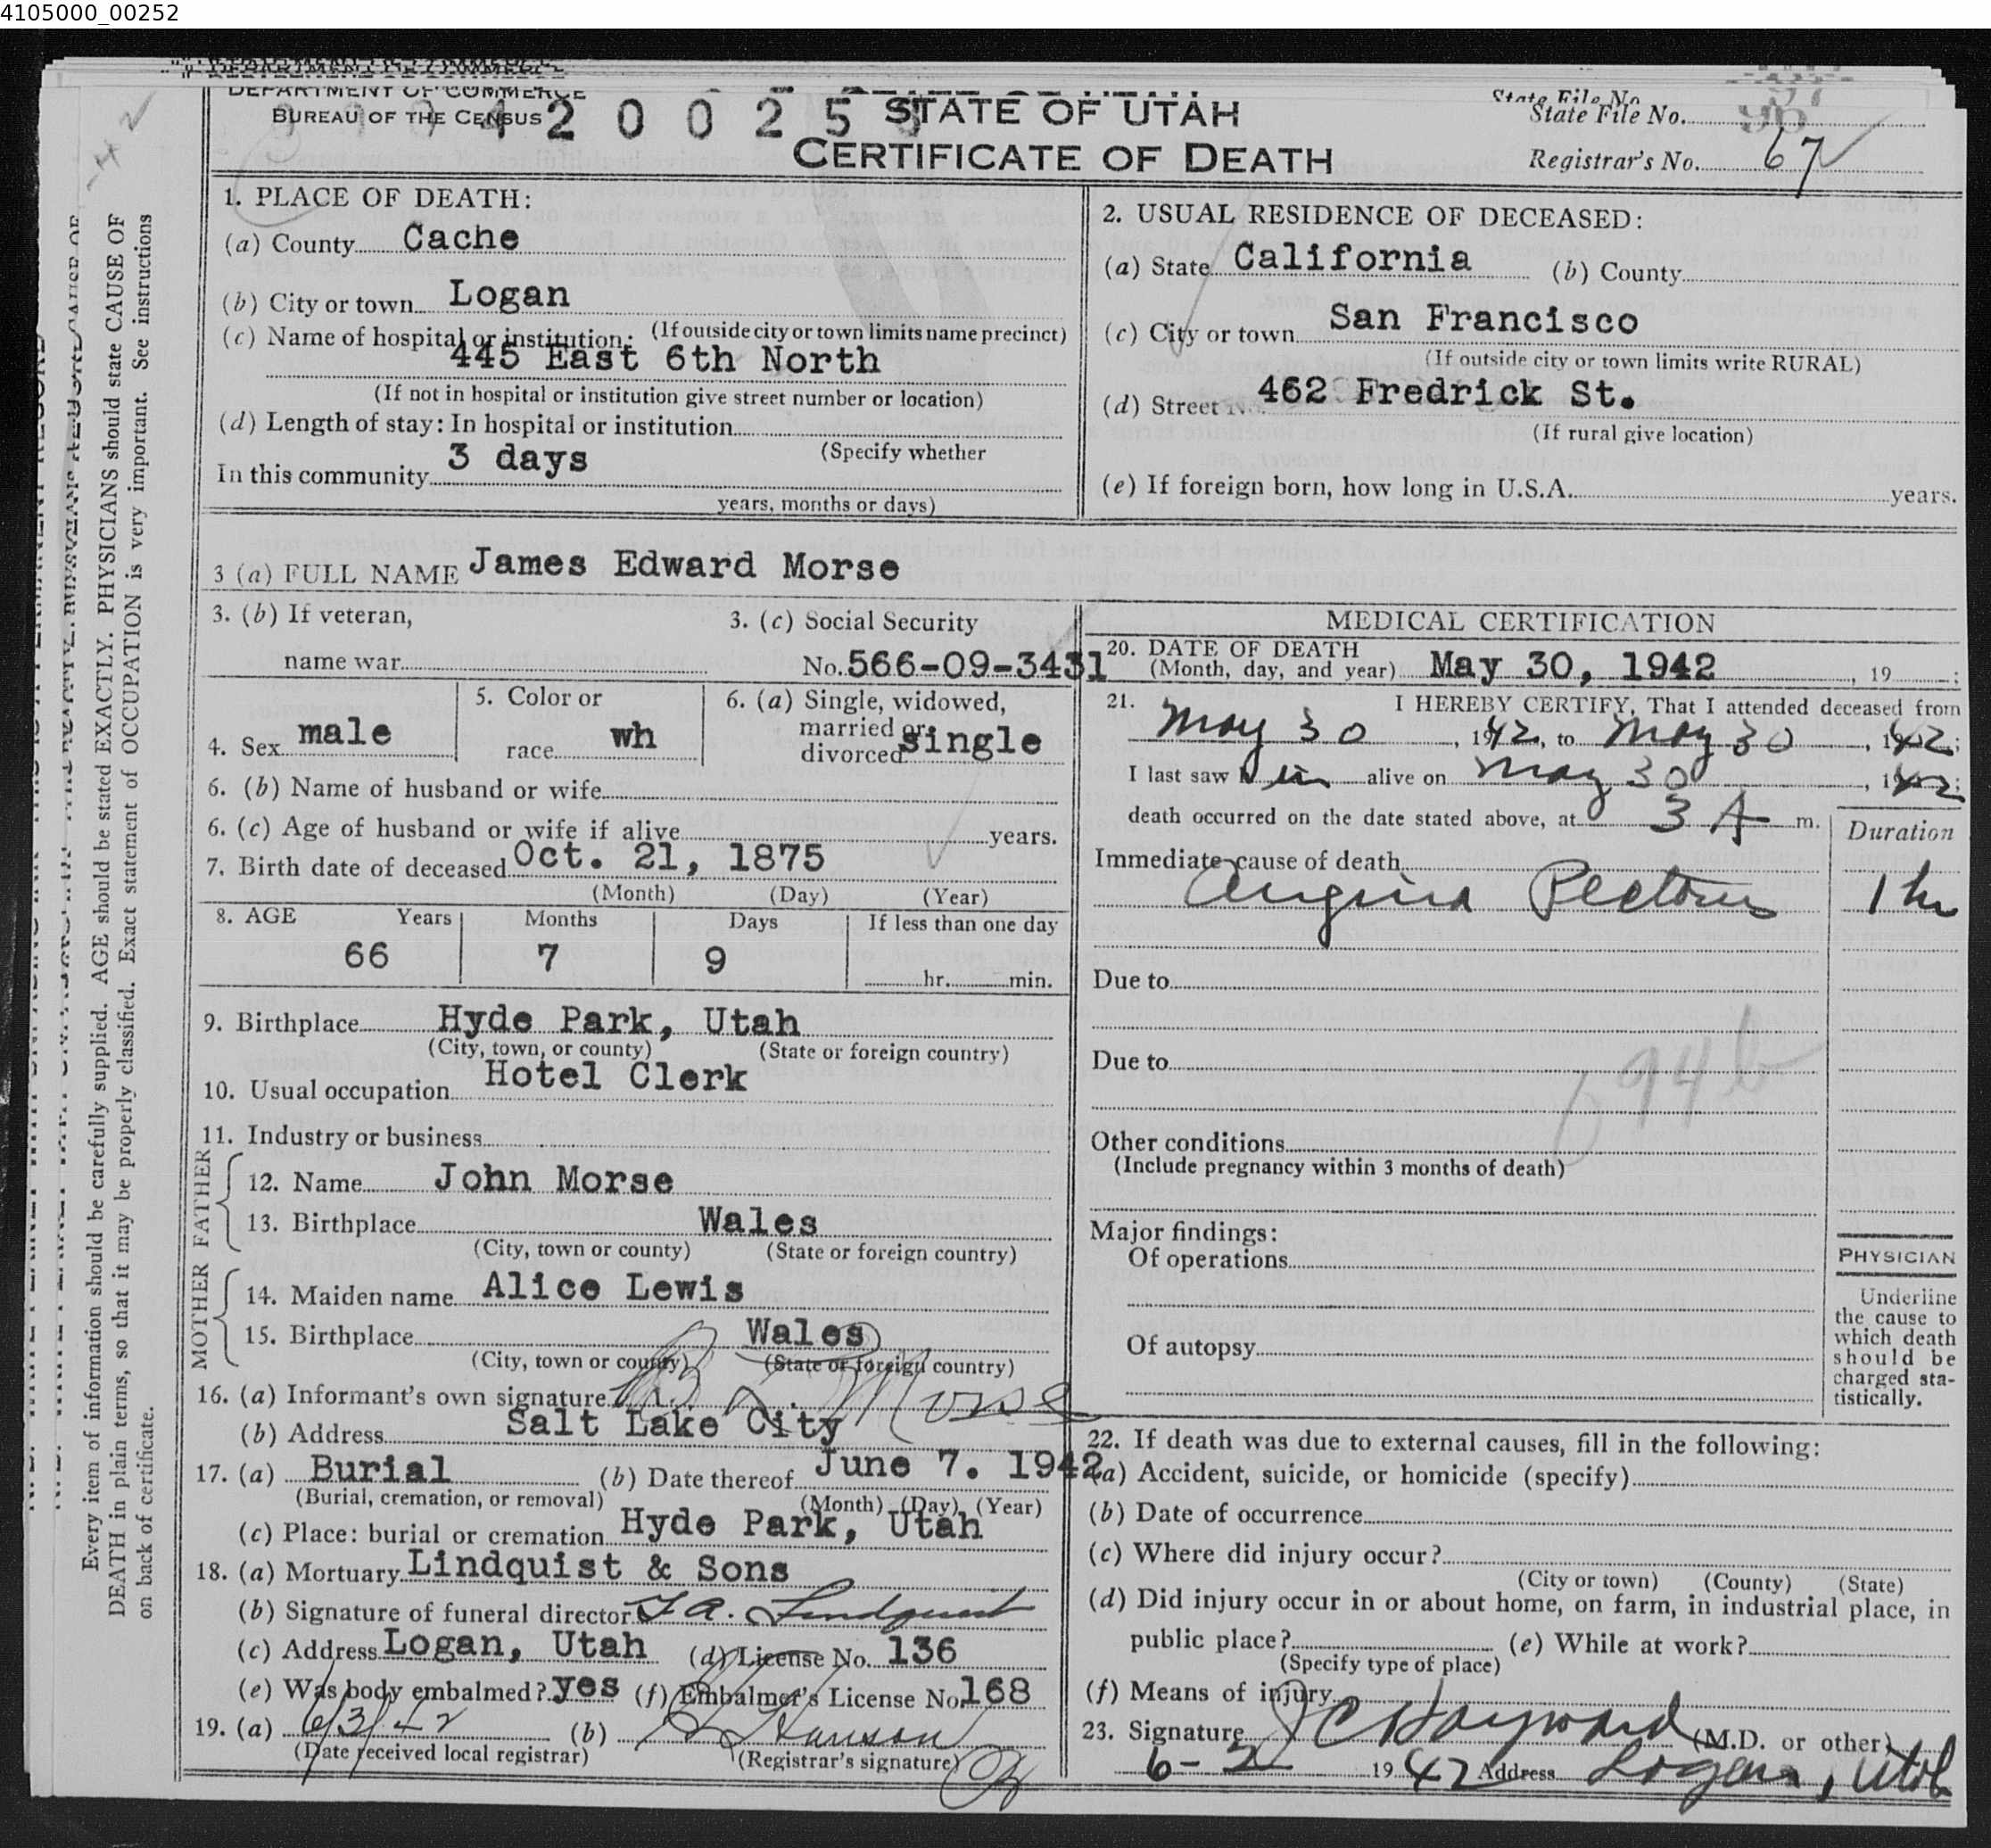 4105000_00252
DEPARTMENT OF COMMERCE
BUREAU OF THE CENSUS
4 2 0 0 2 5
STATE OF UTAH
CERTIFICATE OF DEATH
State File No.
State File No. 96
Registrar's No. 67
1. PLACE OF DEATH:
(a) County Cache
(b) City or town Logan
(c) Name of hospital or institution: (If outside city or town limits name precinct)
445 East 6th North
(If not in hospital or institution give street number or location)
(d) Length of stay: In hospital or institution
(Specify whether
In this community 3 days
years, months or days)
2. USUAL RESIDENCE OF DECEASED:
(a) State California (b) County
(c) City or town San Francisco
(If outside city or town limits write RURAL)
(d) Street 462 Fredrick St.
(If rural give location)
(e) If foreign born, how long in U.S.A. years.
3 (a) FULL NAME James Edward Morse
3. (b) If veteran,
name war
3. (c) Social Security
No. 566-09-3431
4. Sex male
5. Color or
race wh
6. (a) Single, widowed,
married or
divorced single
6. (b) Name of husband or wife
6. (c) Age of husband or wife if alive years.
7. Birth date of deceased Oct. 21, 1875
(Month) (Day) (Year)
8. AGE Years Months Days If less than one day
66 7 9 hr. min.
9. Birthplace Hyde Park, Utah
(City, town, or county) (State or foreign country)
10. Usual occupation Hotel Clerk
11. Industry or business
FATHER
12. Name John Morse
13. Birthplace Wales
(City, town or county) (State or foreign country)
MOTHER
14. Maiden name Alice Lewis
15. Birthplace Wales
(City, town or county) (State or foreign country)
16. (a) Informant's own signature Morse
(b) Address Salt Lake City
17. (a) Burial (b) Date thereof June 7. 1942
(Burial, cremation, or removal) (Month) (Day) (Year)
(c) Place: burial or cremation Hyde Park, Utah
18. (a) Mortuary Lindquist & Sons
(b) Signature of funeral director Lindquist
(c) Address Logan, Utah (d) License No. 136
(e) Was body embalmed? yes (f) Embalmer's License No. 168
19. (a) 6/3/42 (b) Hanson
(Date received local registrar) (Registrar's signature)
MEDICAL CERTIFICATION
20. DATE OF DEATH
(Month, day, and year) May 30, 1942, 19 ;
21. I HEREBY CERTIFY, That I attended deceased from
May 30, 1942, to May 30, 1942;
I last saw him alive on May 30, 1942;
death occurred on the date stated above, at 3 A m.
Duration
Immediate cause of death
Angina Pectoris 1 hr
Due to
Due to
94b
Other conditions
(Include pregnancy within 3 months of death)
Major findings:
Of operations
Of autopsy
PHYSICIAN
Underline
the cause to
which death
should be
charged sta-
tistically.
22. If death was due to external causes, fill in the following:
(a) Accident, suicide, or homicide (specify)
(b) Date of occurrence
(c) Where did injury occur?
(City or town) (County) (State)
(d) Did injury occur in or about home, on farm, in industrial place, in
public place? (e) While at work?
(Specify type of place)
(f) Means of injury
23. Signature J C Hayward (M.D. or other)
6-2 1942 Address Logan, Utah
Every item of information should be carefully supplied. AGE should be stated EXACTLY. PHYSICIANS should state CAUSE OF
DEATH in plain terms, so that it may be properly classified. Exact statement of OCCUPATION is very important. See instructions
on back of certificate.